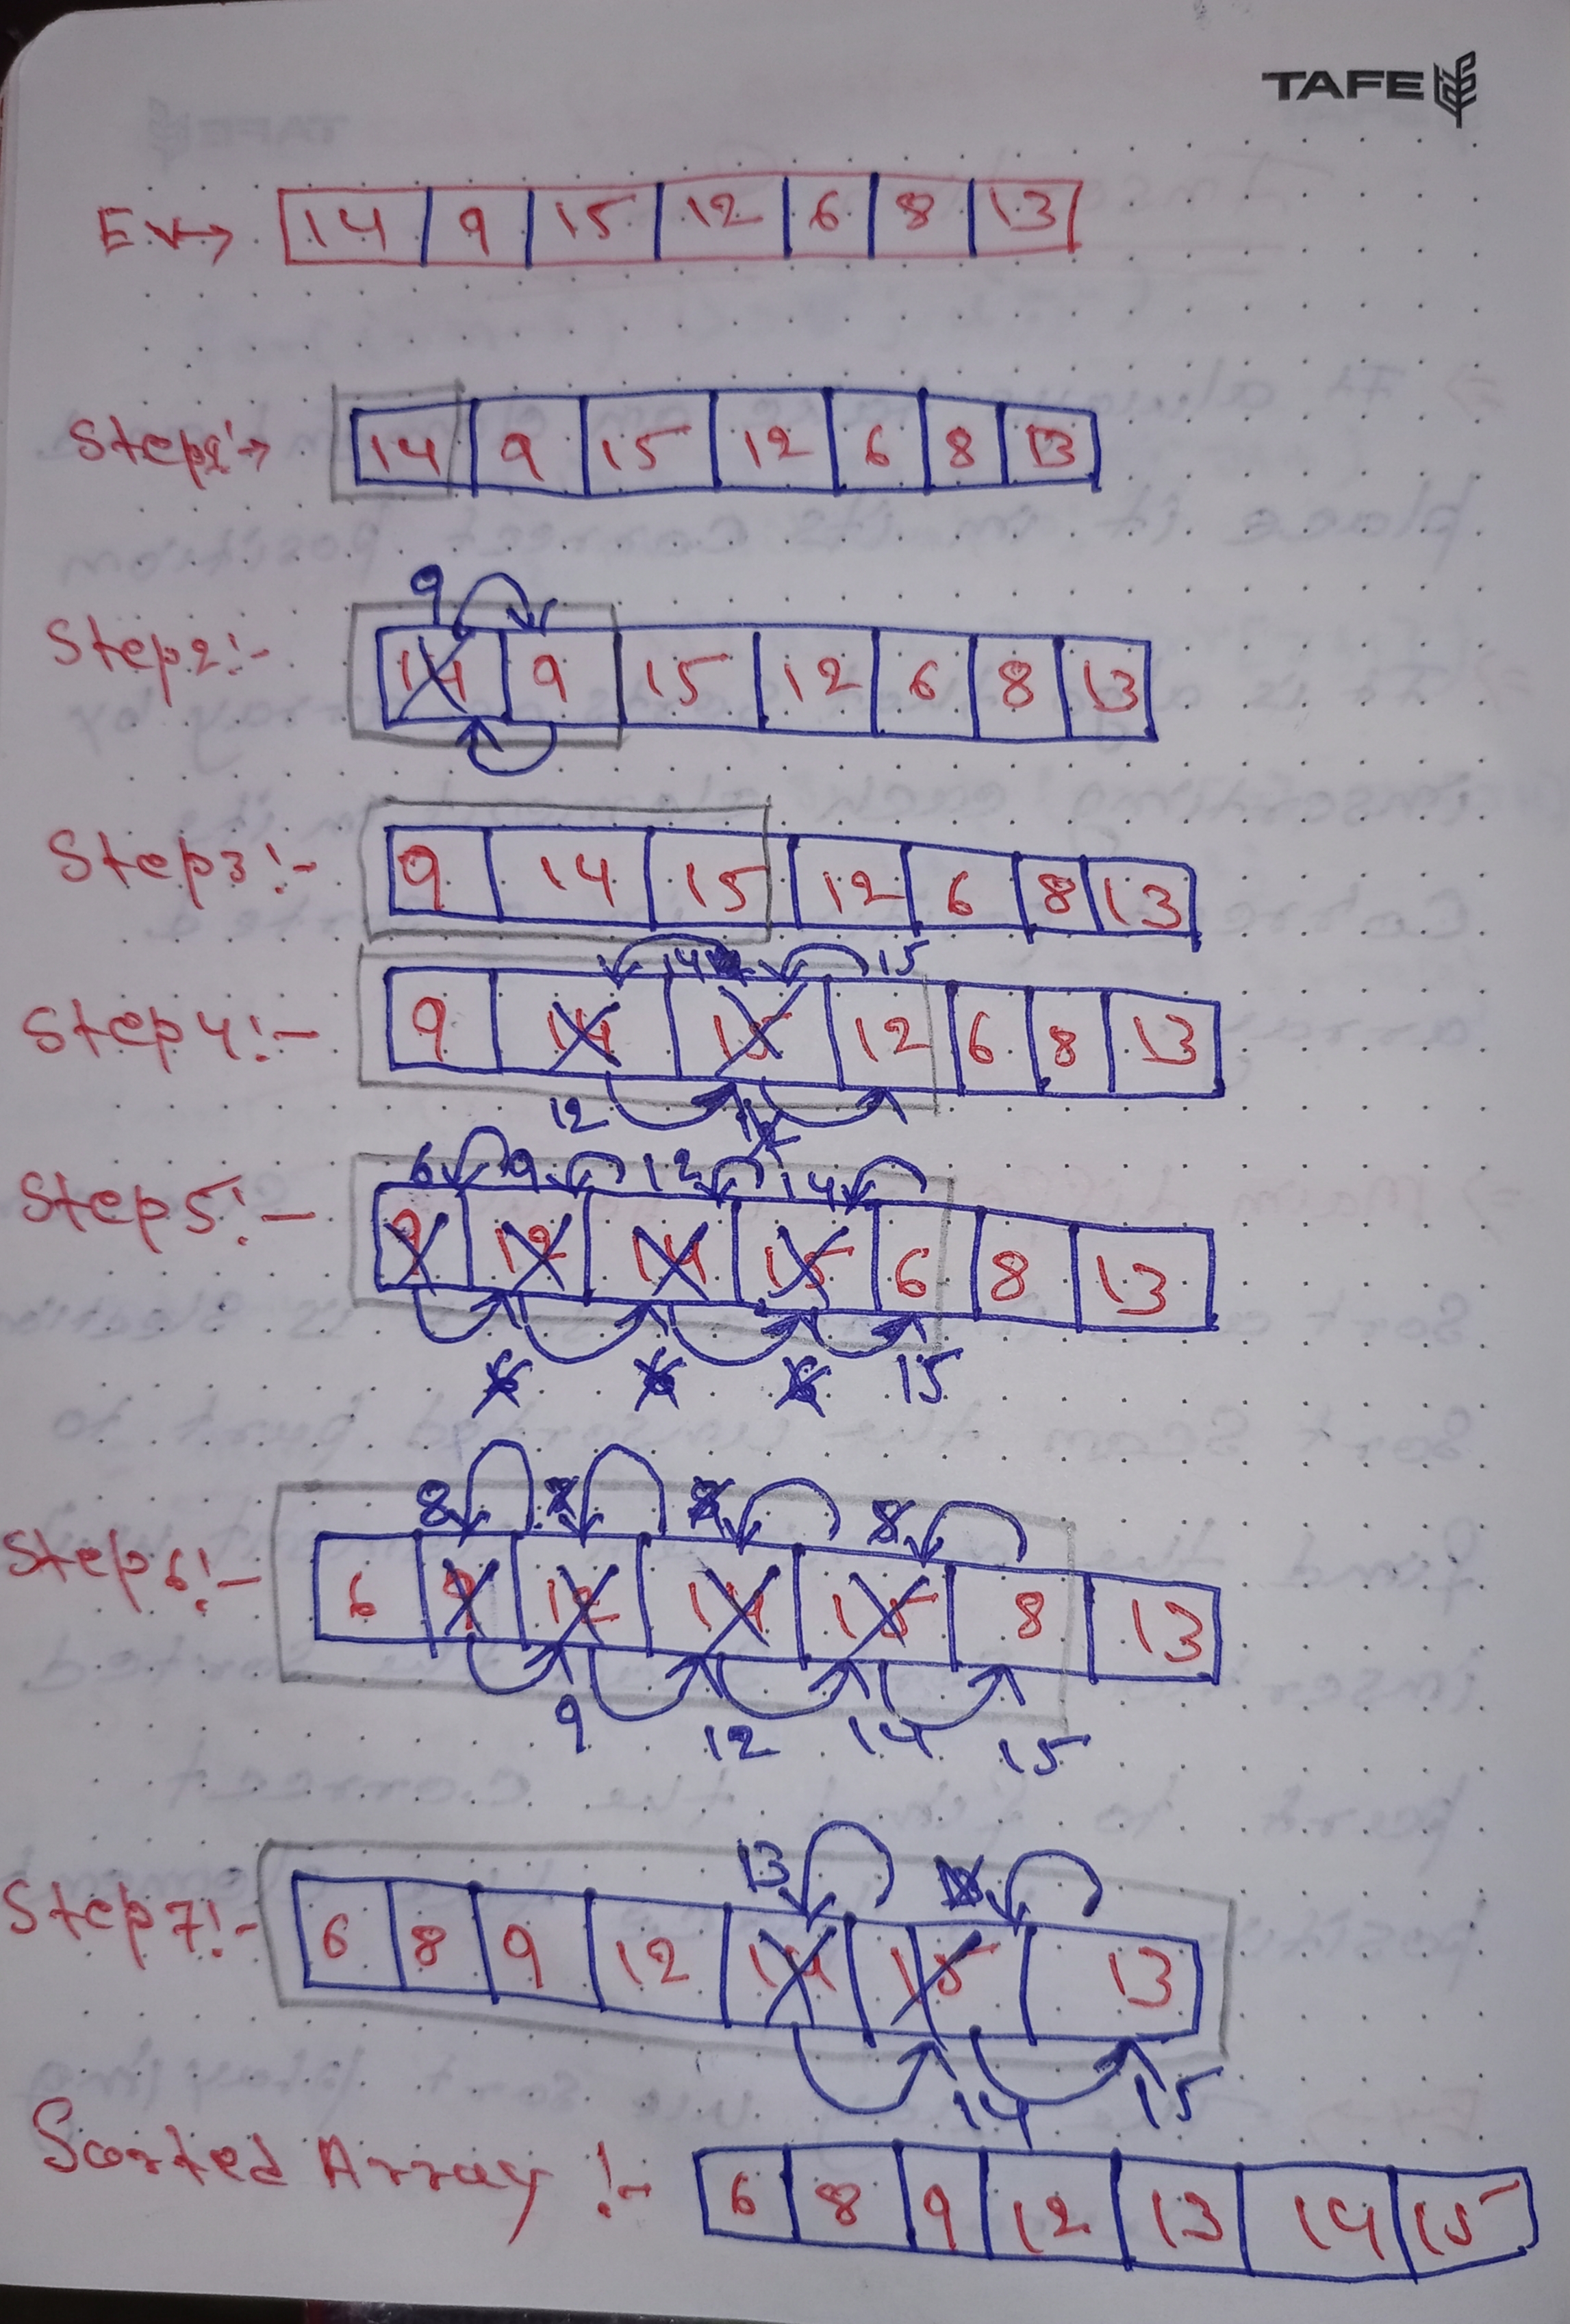 TAFE
Ex→ 14 9 15 12 6 8 13
Step1:→ 14 9 15 12 6 8 13
9
Step2:- 14 9 15 12 6 8 13
Step3:- 9 14 15 12 6 8 13
14 15
Step4:- 9 14 15 12 6 8 13
12
6 9 12 14
Step5:- 9 12 14 15 6 8 13
6 6 6 15
8 8 8 8
Step6:- 6 9 12 14 15 8 13
9 12 14 15
13
Step7:- 6 8 9 12 14 15 13
14 15
Sorted Array:- 6 8 9 12 13 14 15